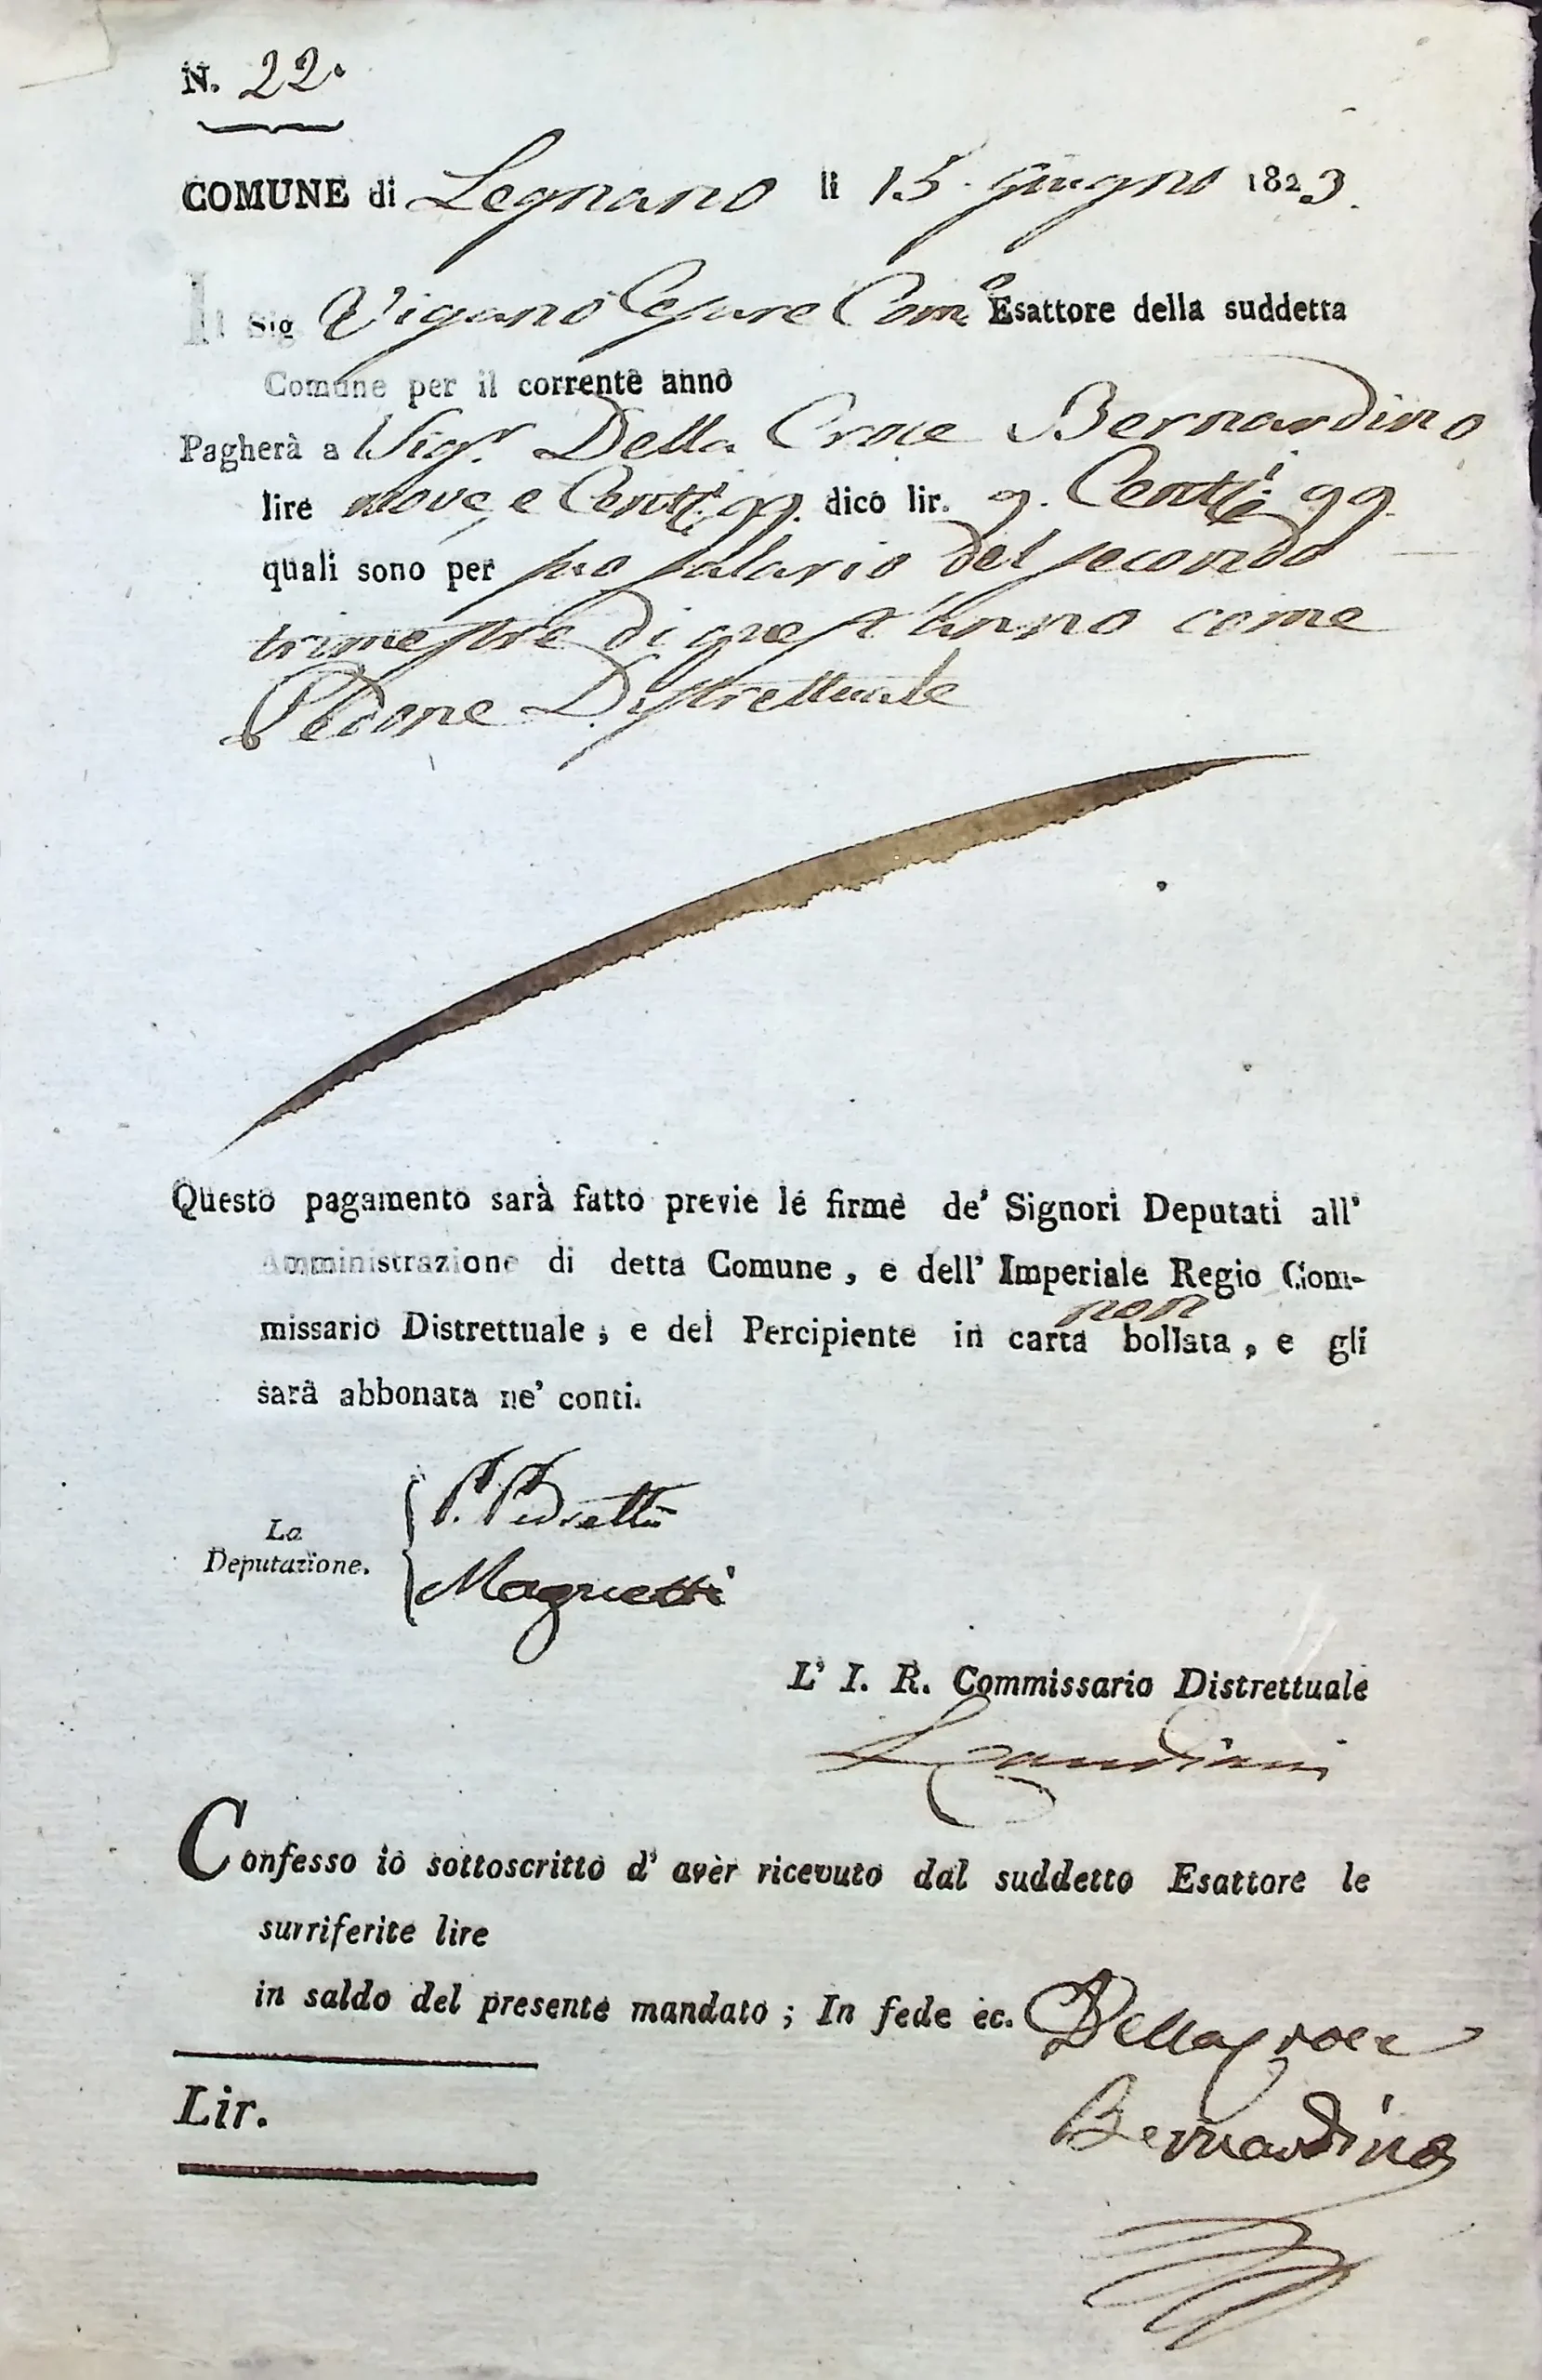 N. 22.
COMUNE di Legnano li 15. Giugno 1823.
Il Sig Viganò Cesare Com.e Esattore della suddetta
Comune per il corrente anno
Pagherà a Sig.r Della Croce Bernardino
lire nove e Cent.i 99. dico lir. 9. Cent.i 99.
quali sono per suo salario del secondo
trimestre di quest'anno come
Pedone Distrettuale
Questo pagamento sarà fatto previe le firme de' Signori Deputati all'
Amministrazione di detta Comune, e dell' Imperiale Regio Com-
missario Distrettuale, e del Percipiente in carta non bollata, e gli
sarà abbonata ne' conti.
La
Deputazione.
Magnetti
L' I. R. Commissario Distrettuale
Confesso io sottoscritto d' aver ricevuto dal suddetto Esattore le
surriferite lire
in saldo del presente mandato; In fede ec. Dellacroce
Bernardino
Lir.